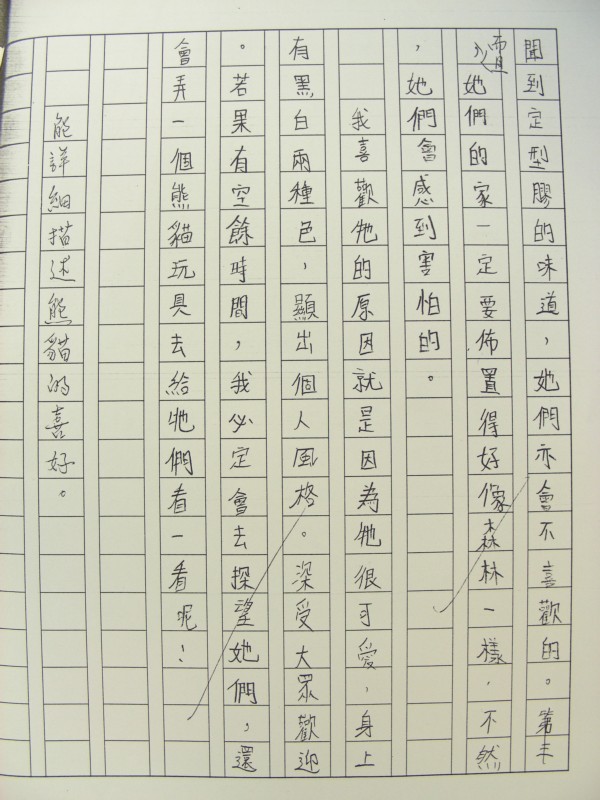 聞到定型膠的味道，她們亦會不喜歡的。第
而且她們的家一定要佈置得好像森林一樣，不然
，她們會感到害怕的。
我喜歡牠的原因就是因為牠很可愛，身上
有黑白兩種色，顯出個人風格。深受大眾歡迎
。若果有空餘時間，我必定會去探望她們，還
會弄一個熊貓玩具去給牠們看一看呢！
能詳細描述熊貓的喜好。